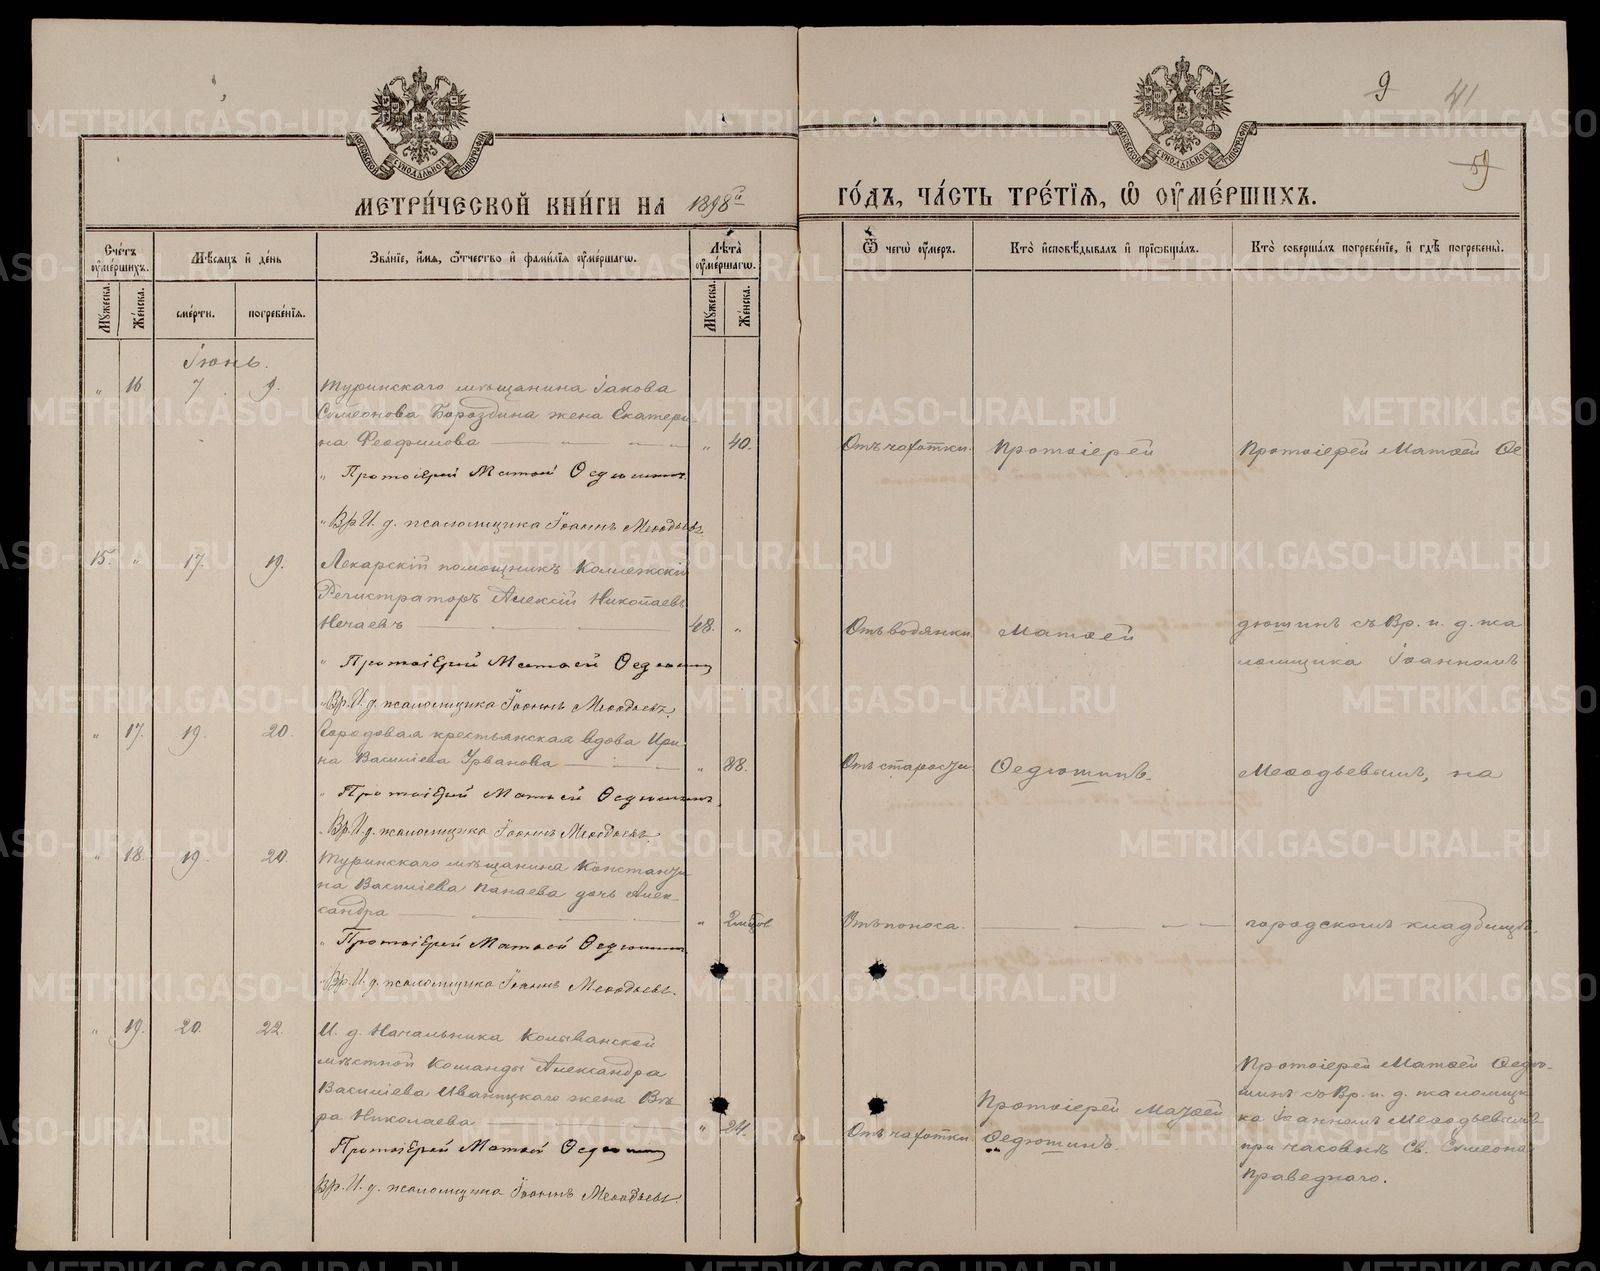 9 41
59
МЕТРИ́ЧЕСКОЙ КНИ́ГИ НА 1898й
ГО́ДЪ, ЧА́СТЬ ТРЕ́ТІЯ, Ѡ ОУМЕ́РШИХЪ.
Сче́тъ оуме́ршихъ.
Мѣ́сяцъ и де́нь
Зва́ніе, и́мя, ѻ҆́тчество и фами́лія оуме́ршагѡ.
Лѣ́та оуме́ршагѡ.
Ѿ чегѡ̀ оу́меръ.
Кто̀ и҆сповѣ́дывалъ и прїѡбща́лъ.
Кто̀ соверша́лъ погребе́ніе, и гдѣ̀ погребены̀.
Му́жеска.
Же́нска.
сме́рти.
погребе́нія.
Му́жеска.
Же́нска.
Іюнь.
„ 16 7 9. Туринскаго мѣщанина Іакова
Сѵмеонова Бороздина жена Екатери-
на Феофилова „ 40. Отъ чахотки. Протоіерей Протоіерей Матѳей Ѳе
„ Протоіерей Матѳей Ѳедюшинъ
„ Вр. И. д. псаломщика Іоаннъ Меѳодьевъ
15. „ 17. 19. Лекарскій помощникъ Коллежскій
Регистраторъ Алексій Николаевъ
Нечаевъ 48. „ Отъ водянки. Матѳей дюшинъ съ Вр. и. д. пса
ломщика Іоанномъ
„ Протоіерей Матѳей Ѳедюшинъ
„ Вр. И. д. псаломщика Іоаннъ Меѳодьевъ.
„ 17. 19. 20. Городовая крестьянская вдова Ири-
на Василіева Урванова „ 88. Отъ старости Ѳедюшинъ. Меѳодьевымъ, на
„ Протоіерей Матѳей Ѳедюшинъ.
„ Вр. И. д. псаломщика Іоаннъ Меѳодьевъ
„ 18. 19. 20. Туринскаго мѣщанина Константи
на Василіева Панаева дочь Алек-
сандра „ 2 мѣсяцов Отъ поноса. городскомъ кладбищѣ.
„ Протоіерей Матѳей Ѳедюшинъ
„ Вр. И. д. псаломщика Іоаннъ Меѳодьевъ.
„ 19. 20. 22. И. д. Начальника Колыванской
мѣстной Команды Александра
Василіева Иваницкаго жена Вѣ-
ра Николаева „ 24. Отъ чахотки. Протоіерей Матѳей
Ѳедюшинъ.
Протоіерей Матѳей Ѳедю-
шинъ съ Вр. и. д. псаломщи-
ка Іоанномъ Меѳодьевымъ
при часовнѣ Св. Сѵмеона
Праведнаго.
Протоіерей Матѳей Ѳедюшинъ
Вр. И. д. псаломщика Іоаннъ Меѳодьевъ.